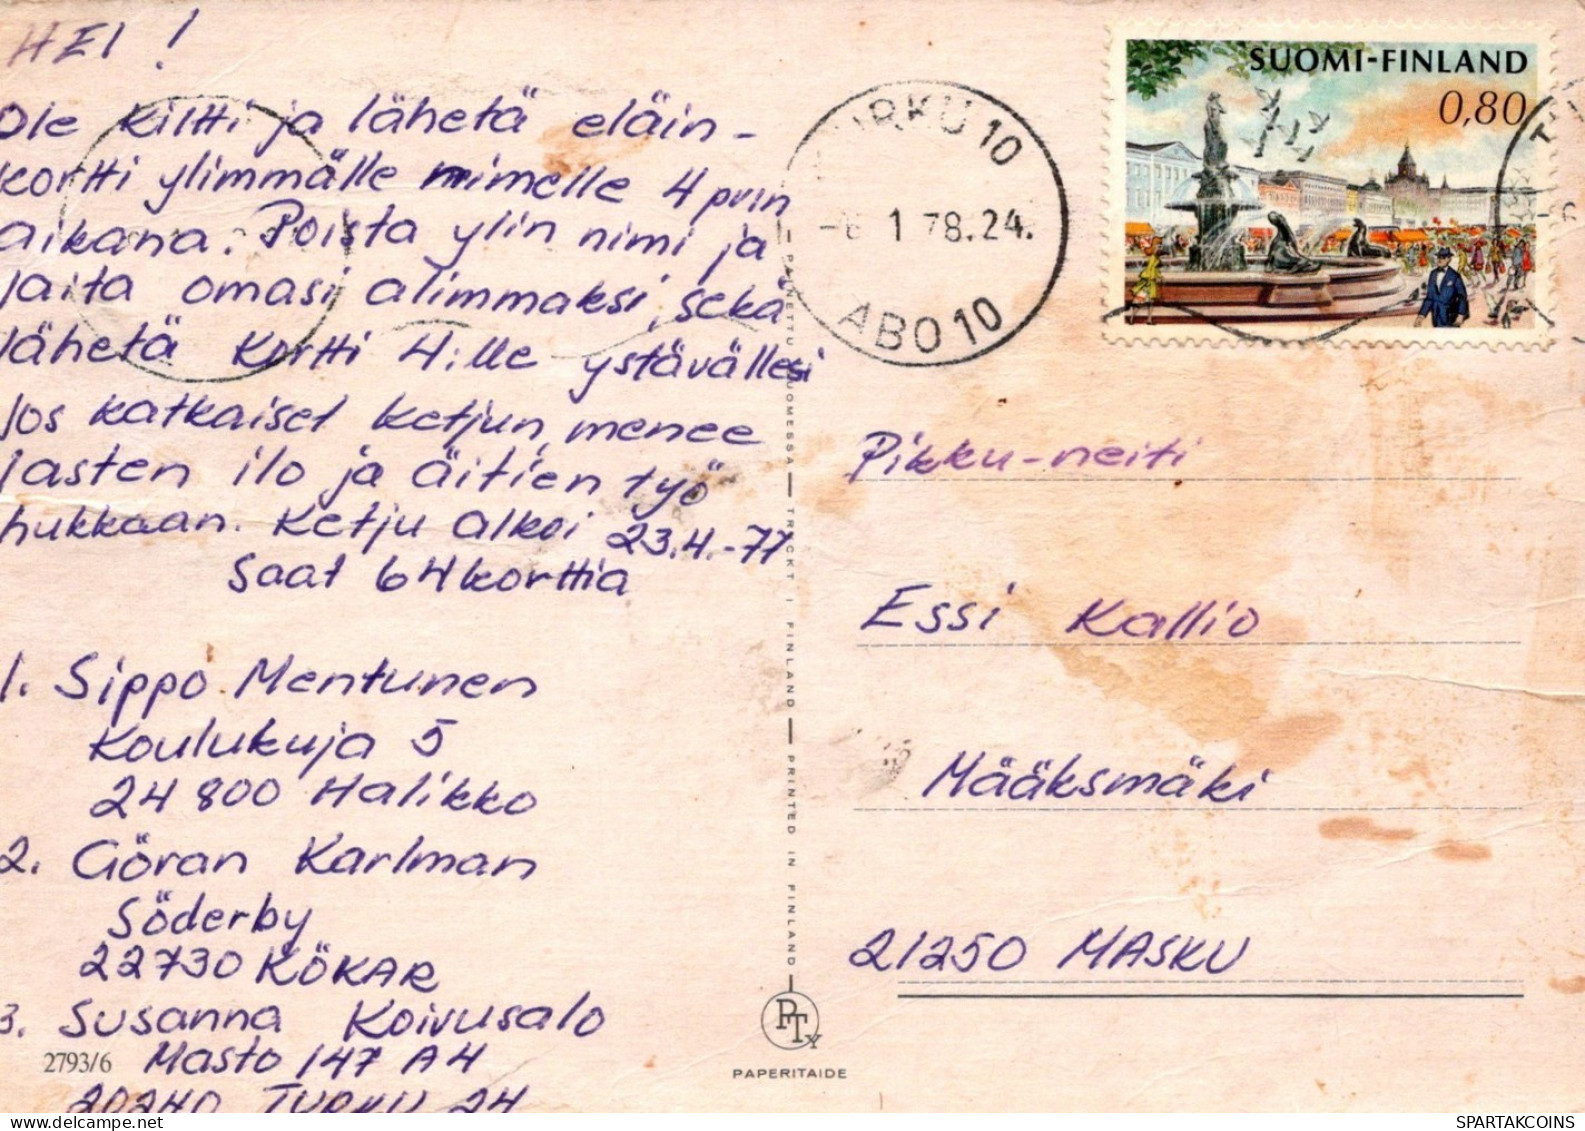 HEI !
Ole kiltti ja lähetä eläin-
kortti ylimmälle nimelle 4 pvin
aikana. Poista ylin nimi ja
laita omasi alimmaksi, sekä
lähetä kortti 4:lle ystävällesi
Jos katkaiset ketjun, menee
lasten ilo ja äitien työ
hukkaan. Ketju alkoi 23.4.-77
Saat 64 korttia
1. Sippo Mentunen
Koulukuja 5
24 800 Halikko
2. Göran Karlman
Söderby
22730 KÖKAR
3. Susanna Koivusalo
2793/6 Masto 147 A 4
20240 TURKU 24
PAINETTU SUOMESSA — TRYCKT I FINLAND — PRINTED IN FINLAND
PTy
PAPERITAIDE
TURKU 10
1 78.24.
ÅBO 10
SUOMI-FINLAND
0,80
Pikku-neiti
Essi Kallio
Määksmäki
21250 MASKU
SPARTAKCOINS